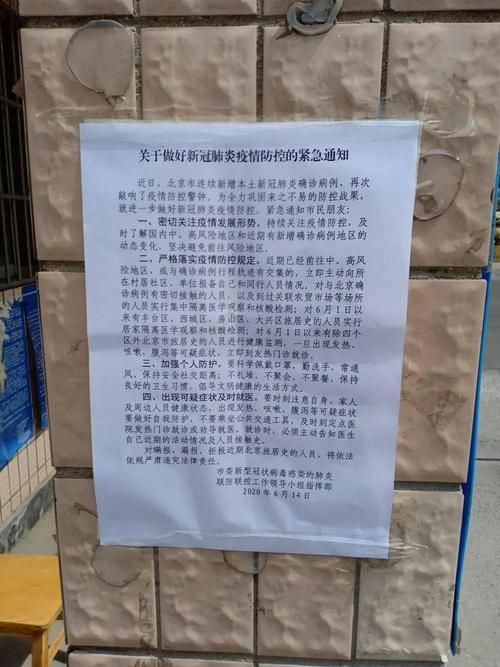 关于做好新冠肺炎疫情防控的紧急通知
近日，北京市连续新增本土新冠肺炎确诊病例，再次
敲响了疫情防控警钟。为全力巩固来之不易的防控战果，
就进一步做好新冠肺炎疫情防控，紧急通知市民朋友：
一、密切关注疫情发展形势。持续关注疫情防控，及
时了解国内中、高风险地区和近期有新增确诊病例地区的
动态变化，坚决避免前往风险地区。
二、严格落实疫情防控规定。近期已经前往中、高风
险地区，或与确诊病例行程轨迹有交集的，立即主动向所
在村居社区、单位报备自己和同行人员情况。对与北京确
诊病例有密切接触的人员，以及到过关联农贸市场等场所
的人员实行集中隔离医学观察和核酸检测；对6月1日以
来有丰台区、西城区、房山区、大兴区旅居史的人员实行
居家隔离医学观察和核酸检测；对6月1日以来有除四个
区外北京市旅居史的人员进行健康监测，一旦出现发热、
咳嗽、腹泻等可疑症状，立即到发热门诊就诊。
三、加强个人防护。要科学佩戴口罩，勤洗手、常通
风，保持安全社交距离；不扎堆，不聚会、不聚餐，保持
良好的卫生习惯，倡导文明健康的生活方式。
四、出现可疑症状及时就医。要时刻注意自身、家人
及周边人员健康状态，出现发热、咳嗽、腹泻等可疑症状
要做好自我防护，不要乘坐公共交通工具，及时到定点医
院发热门诊就诊或劝导就医。就诊时，必须主动告知医生
自己近期的活动情况及人员接触史。
对瞒报、漏报、拒报近期北京旅居史的人员，将依法
依规严肃追究法律责任。
市委新型冠状病毒感染的肺炎
联防联控工作领导小组指挥部
2020年6月14日